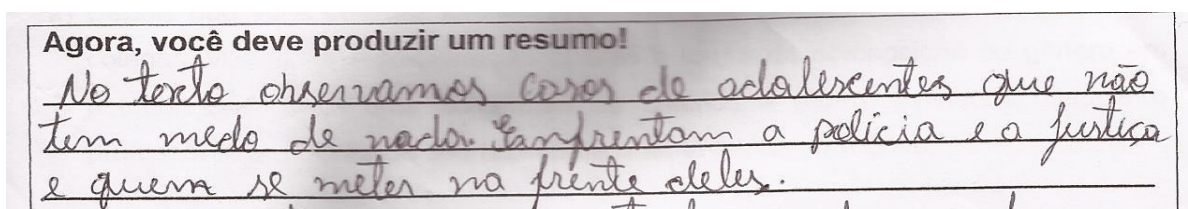 Agora, você deve produzir um resumo!
No texto observamos casos de adolescentes que não
tem medo de nada. Enfrentam a polícia e a justiça
e quem se meter na frente deles.